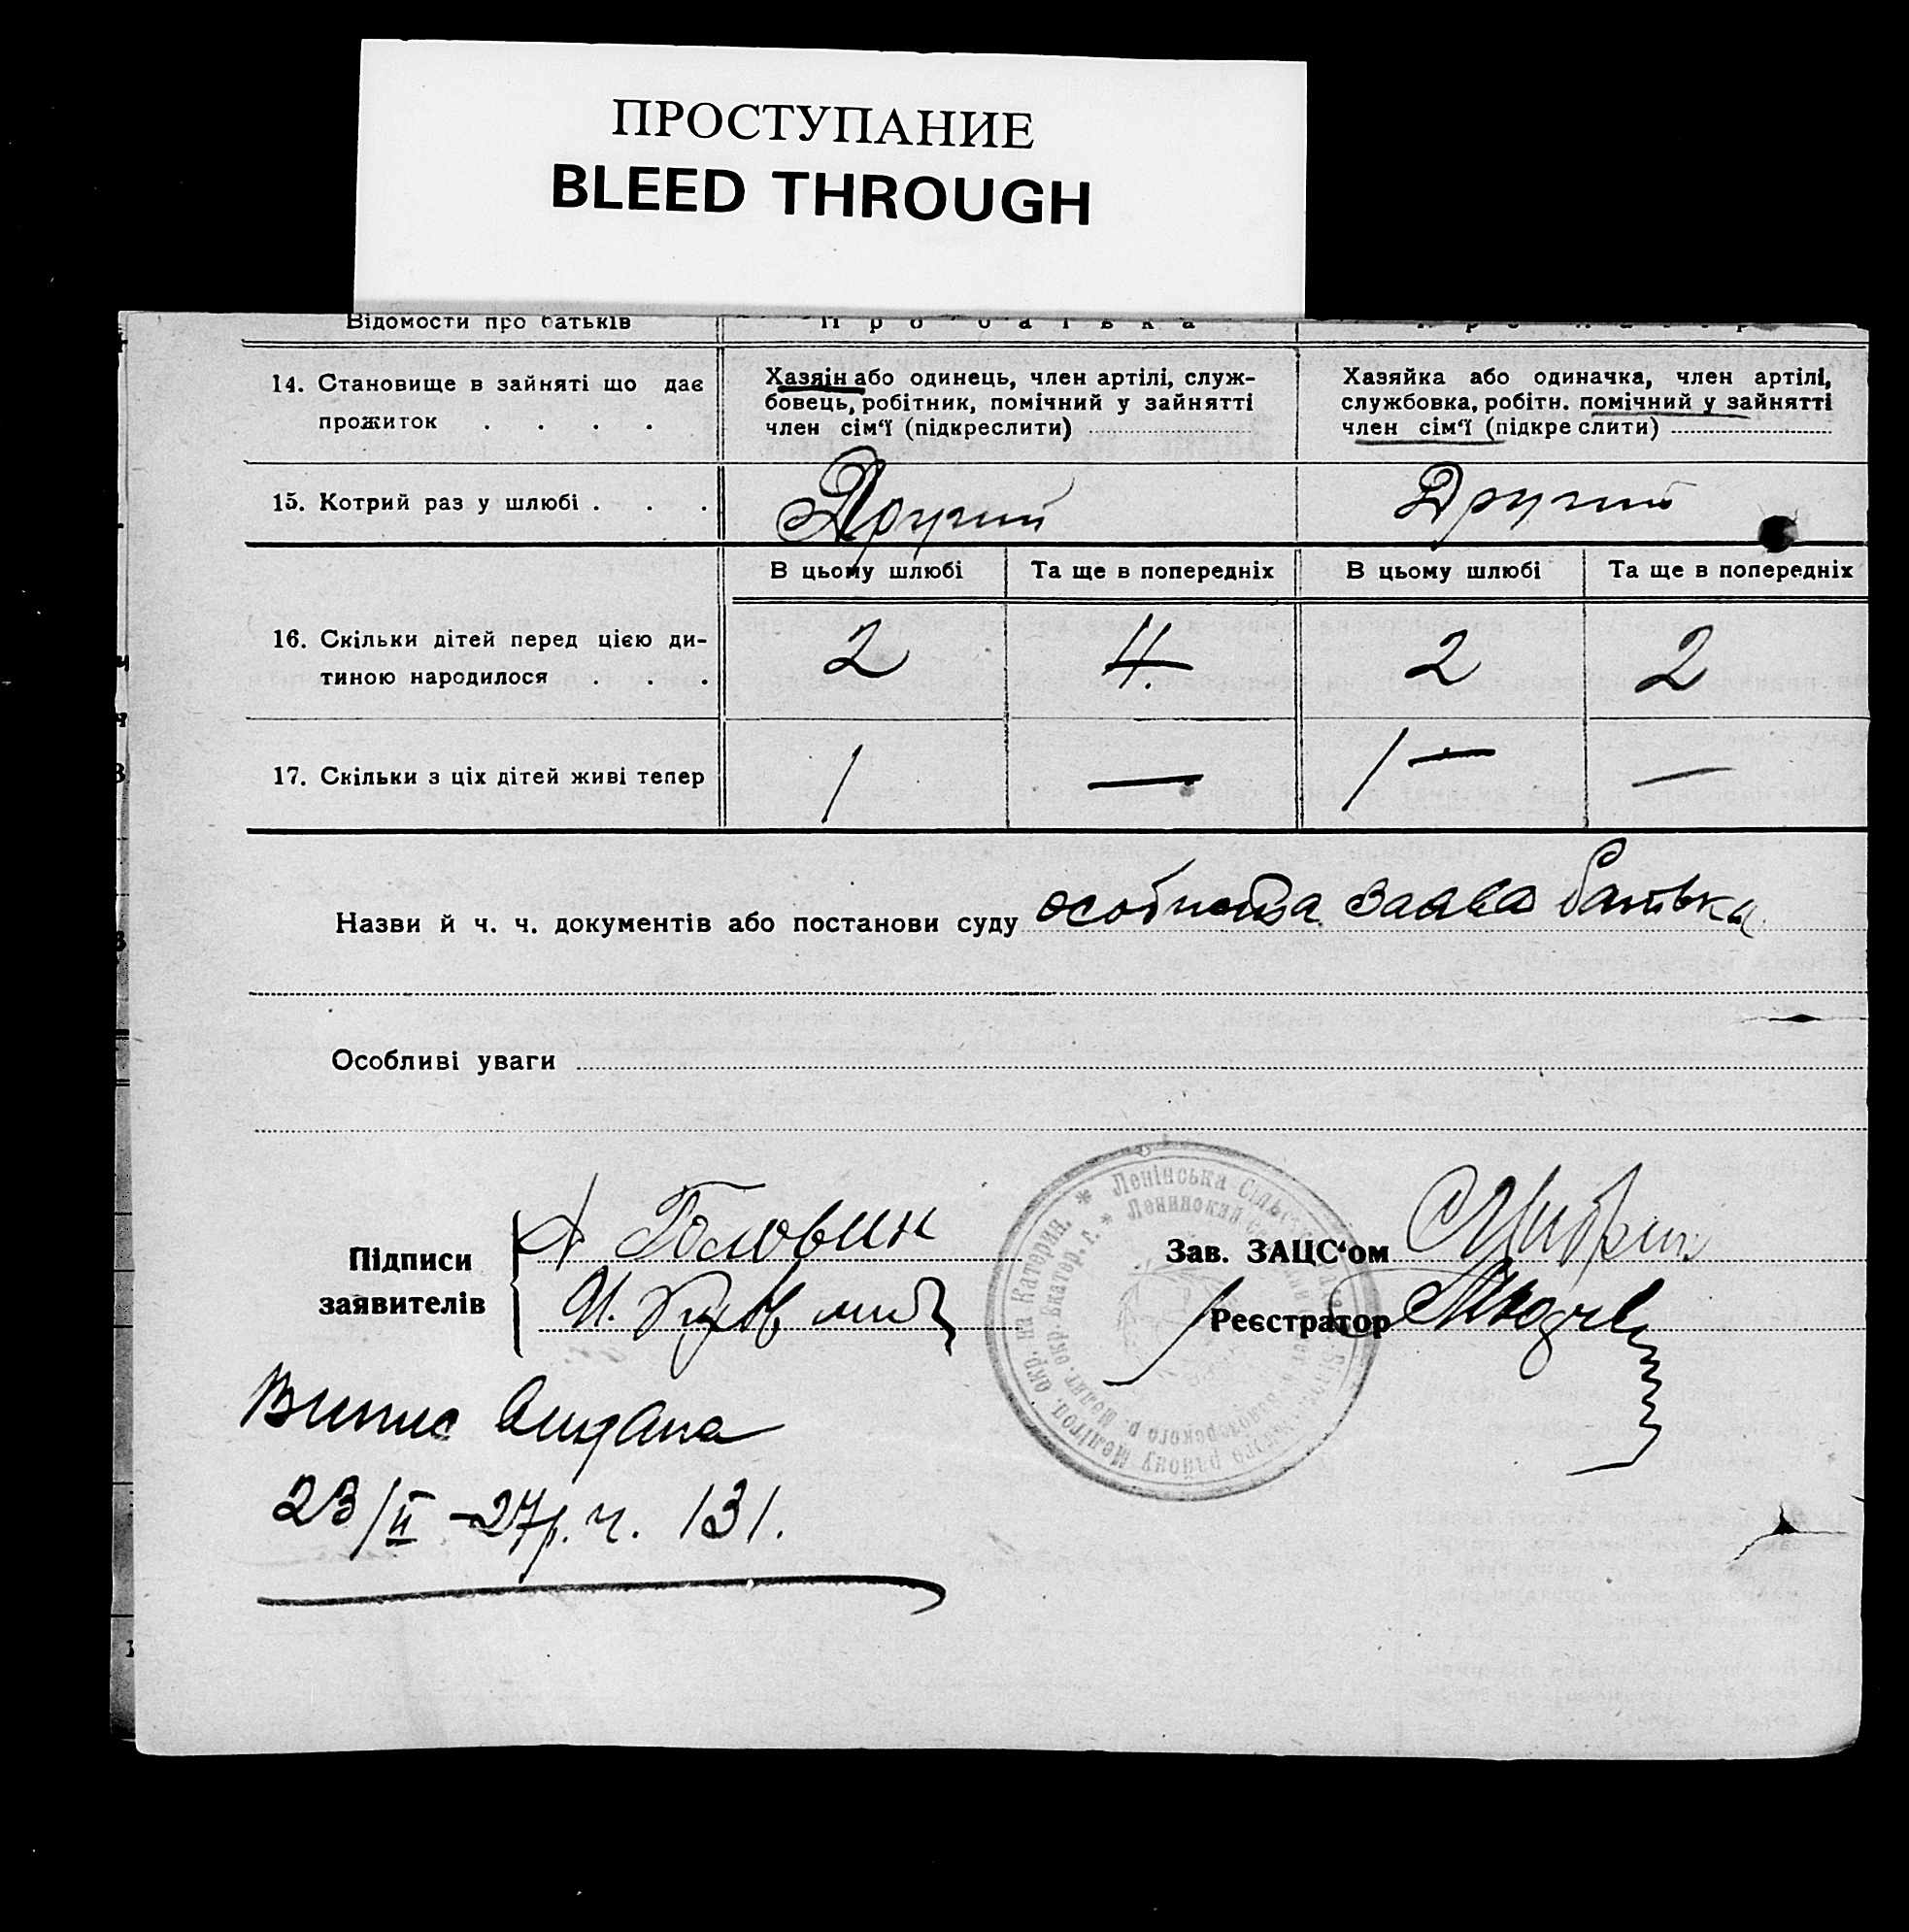 ПРОСТУПАНИЕ
BLEED THROUGH
Відомости про батьків П р о б а т ь к а П р о м а т і р
14. Становище в зайняті що дає прожиток . . . .
Хазяїн або одинець, член артілі, служ-
бовець, робітник, помічний у зайнятті
член сім'ї (підкреслити)
Хазяйка або одиначка, член артілі,
службовка, робітн. помічний у зайнятті
член сім'ї (підкреслити)
15. Котрий раз у шлюбі . . . Другий Другий
В цьому шлюбі Та ще в попередніх В цьому шлюбі Та ще в попередніх
16. Скільки дітей перед цією ди-
тиною народилося . . . 2 4. 2 2
17. Скільки з ціх дітей живі тепер 1 — 1 — —
Назви й ч. ч. документів або постанови суду особиста заява батька
Особливі уваги
Підписи
заявителів
Головин
И.
Зав. ЗАЦС'ом
Реєстратор
Ленінська
Ленинский
окр. на Катерин.
району Мелітоп.
Випис видана
23/II –27р. ч. 131.